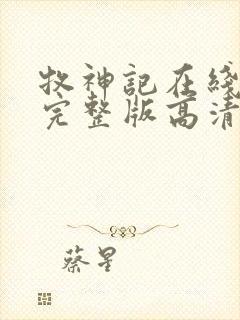 牧神記在綫
完整版高清
蔡星